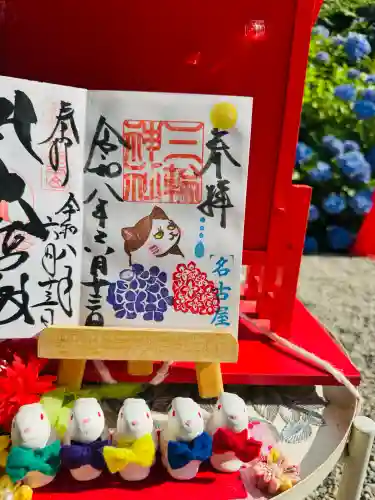 奉拝
三輪
神社
令和八年六月十三日
名古屋
奉拝
令和八年
六月十三日